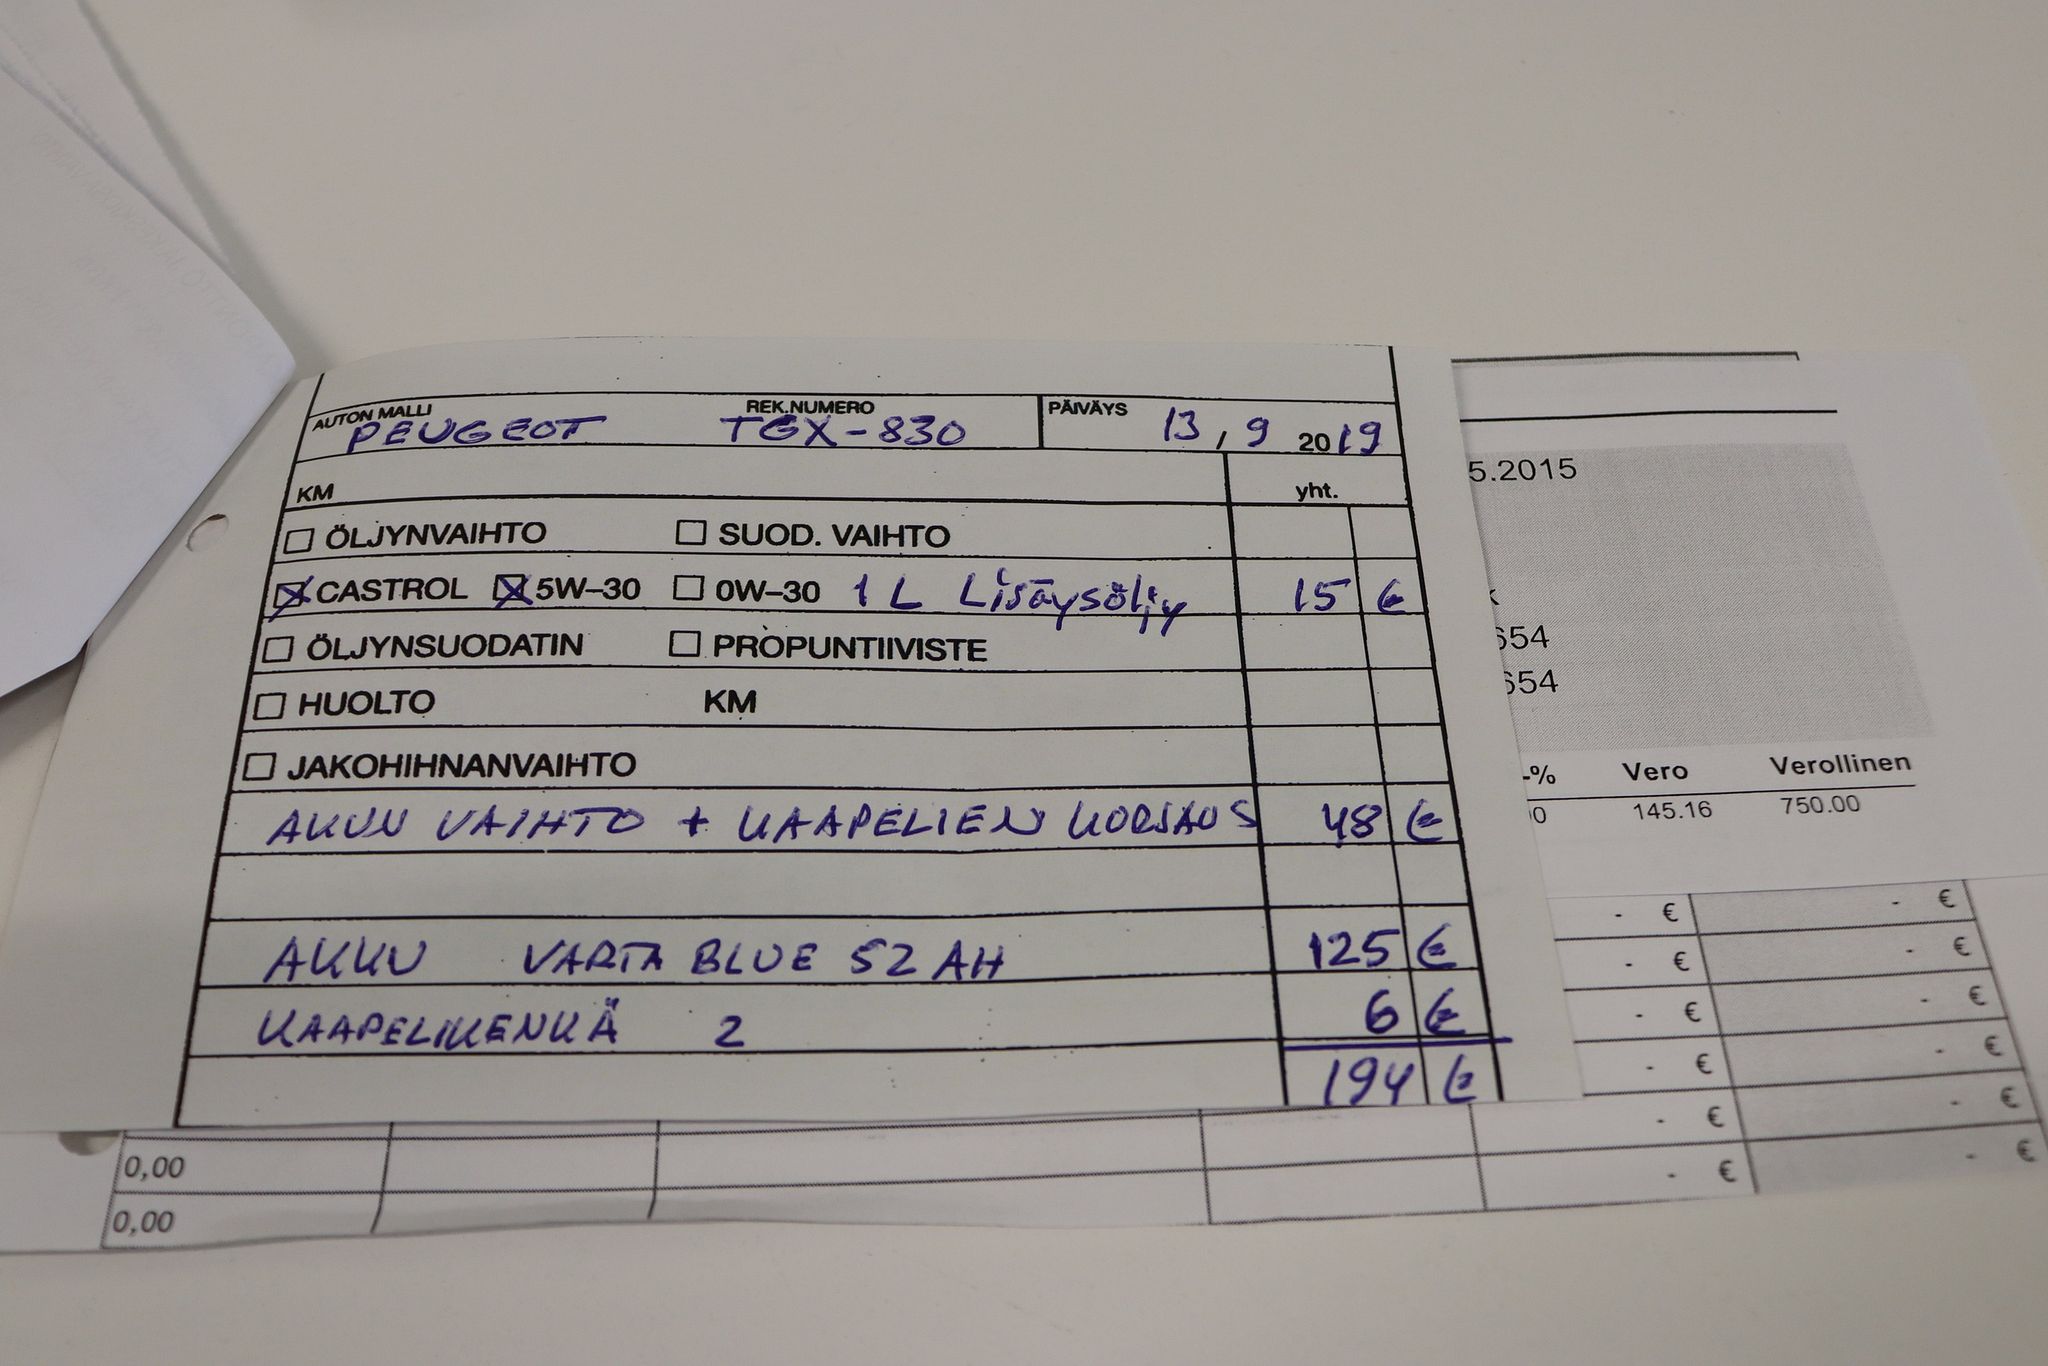 AUTON MALLI REK.NUMERO PÄIVÄYS
PEUGEOT TGX-830 13,9 2019
KM yht.
ÖLJYNVAIHTO SUOD. VAIHTO
CASTROL 5W-30 0W-30 1 L Lisäysöljy 15 €
ÖLJYNSUODATIN PROPUNTIIVISTE
HUOLTO KM
JAKOHIHNANVAIHTO
AKUU VAIHTO + KAAPELIEN KORJAUS 48 €
AKKU VARTA BLUE 52 AH 125 €
KAAPELIKENKÄ 2 6 €
194 €
5.2015
654
654
-% Vero Verollinen
145.16 750.00
- € - €
- € - €
- € - €
- € - €
- € - €
- € - €
0,00
0,00